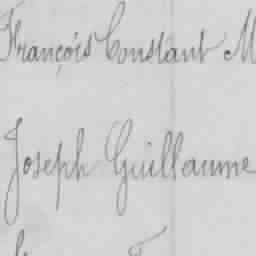 François Constant M
Joseph Guillaume